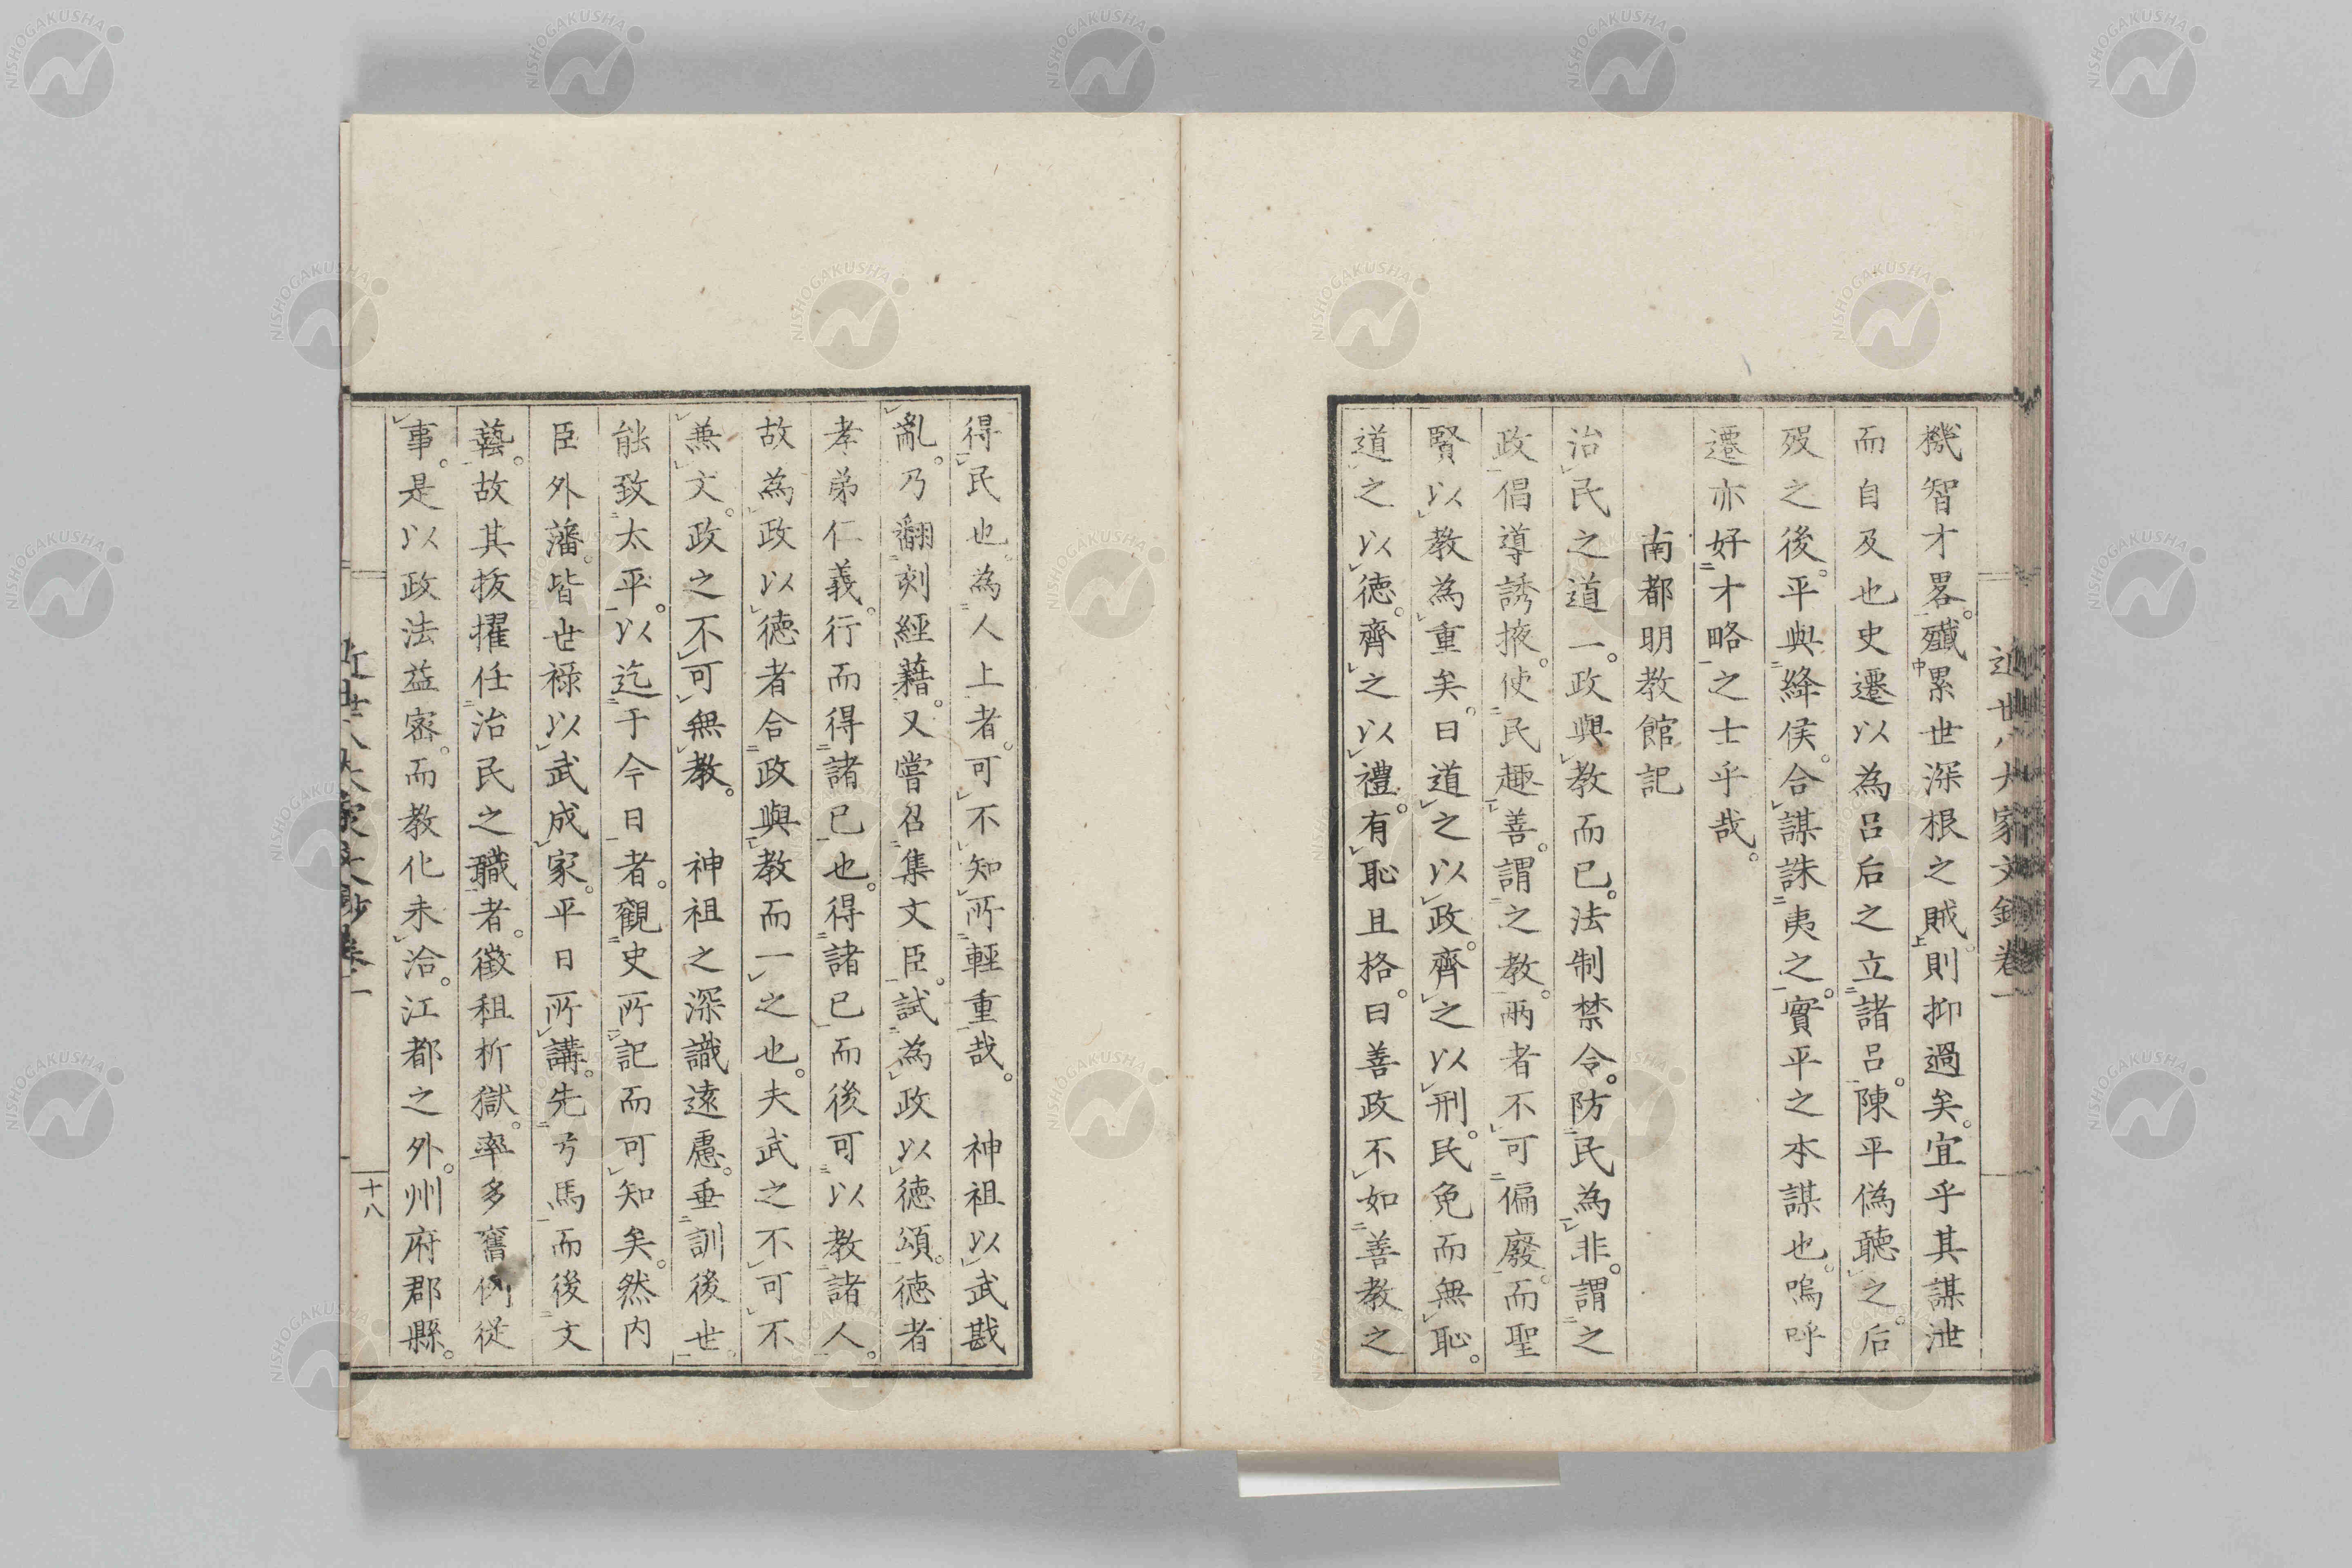 機智才畧。殲累世深根之賊。則抑過矣。宜乎其謀泄
而自及也史遷以為呂后之立諸呂。陳平偽聽之。后
歿之後。平與絳侯。合謀誅夷之。實平之本謀也。嗚呼
遷亦好才略之士乎哉。
南都明教館記
治民之道一。政與教而已。法制禁令。防民為非。謂之
政。倡導誘掖。使民趣善。謂之教。兩者不可偏廢。而聖
賢以教為重矣。曰道之以政。齊之以刑。民免而無恥。
道之以德。齊之以禮。有恥且格。曰善政不如善教之
得民也。為人上者。可不知所輕重哉。 神祖以武戡
亂。乃翻刻經藉。又嘗召集文臣。試為政以德頌。德者
孝弟仁義。行而得諸己也。得諸己而後可以教諸人。
故為政以德者合政與教而一之也。夫武之不可不
兼文。政之不可無教。 神祖之深識遠慮。垂訓後世。
能致太平。以迄于今日者。觀史所記而可知矣。然內
臣外藩。皆世祿以武成家。平日所講。先弓馬而後文
藝。故其拔擢任治民之職者。徵租折獄。率多舊例從
事。是以政法益密。而教化未洽。江都之外。州府郡縣。
近世八大家文鈔卷一
十八
NISHOGAKUSHA